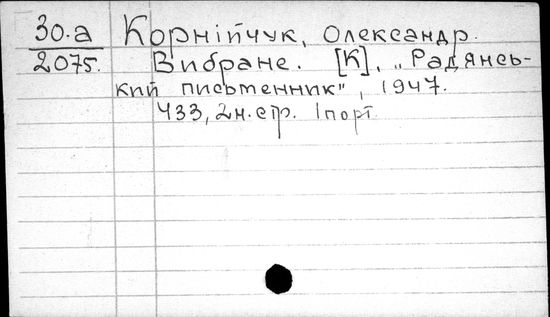 30.a Корнійчук, Олександр.
2075. Вибране. [К], „Радянсь-
кий письменник", 1947.
433, 2н.стр. 1 порт